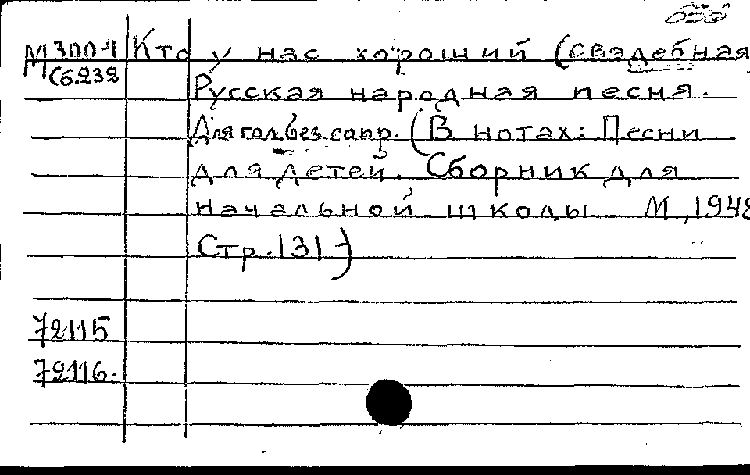 М 300-1 Кто у нас хороший (свадебная
Сб.232
Русская народная песня.
Для гол. без сопр. (В нотах: Песни
для детей. Сборник для
начальной школы М, 1948
Стр. 131-)
72115
72116.